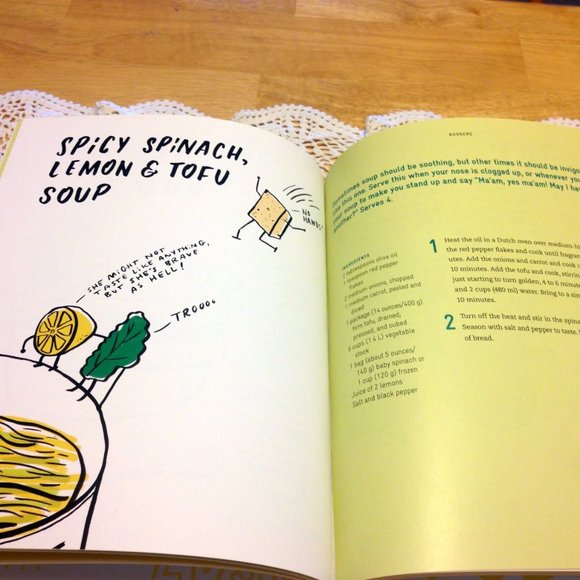 SPiCY SPiNACH,
LEMON & TOFU
SOUP
NO
HANDS!
SHE MIGHT NOT
TASTE LIKE ANYTHING,
BUT SHE'S BRAVE
AS HELL!
TROOOO
NOONERS
Sometimes soup should be soothing, but other times it should be invigo
like this one. Serve this when your nose is clogged up, or whenever you
your soup to make you stand up and say "Ma'am, yes ma'am! May I ha
another?" Serves 4.
INGREDIENTS
2 tablespoons olive oil
1 teaspoon red pepper
flakes
2 medium onions, chopped
1 medium carrot, peeled and
sliced
1 package (14 ounces/400 g)
firm tofu, drained,
pressed, and cubed
6 cups (1.4 L) vegetable
stock
1 bag (about 5 ounces/
140 g) baby spinach or
1 cup (120 g) frozen
Juice of 2 lemons
Salt and black pepper
1 Heat the oil in a Dutch oven over medium-h
the red pepper flakes and cook until fragran
utes. Add the onions and carrot and cook
10 minutes. Add the tofu and cook, stirring
just starting to turn golden, 4 to 6 minute
and 2 cups (480 ml) water. Bring to a si
10 minutes.
2 Turn off the heat and stir in the spina
Season with salt and pepper to taste.
of bread.